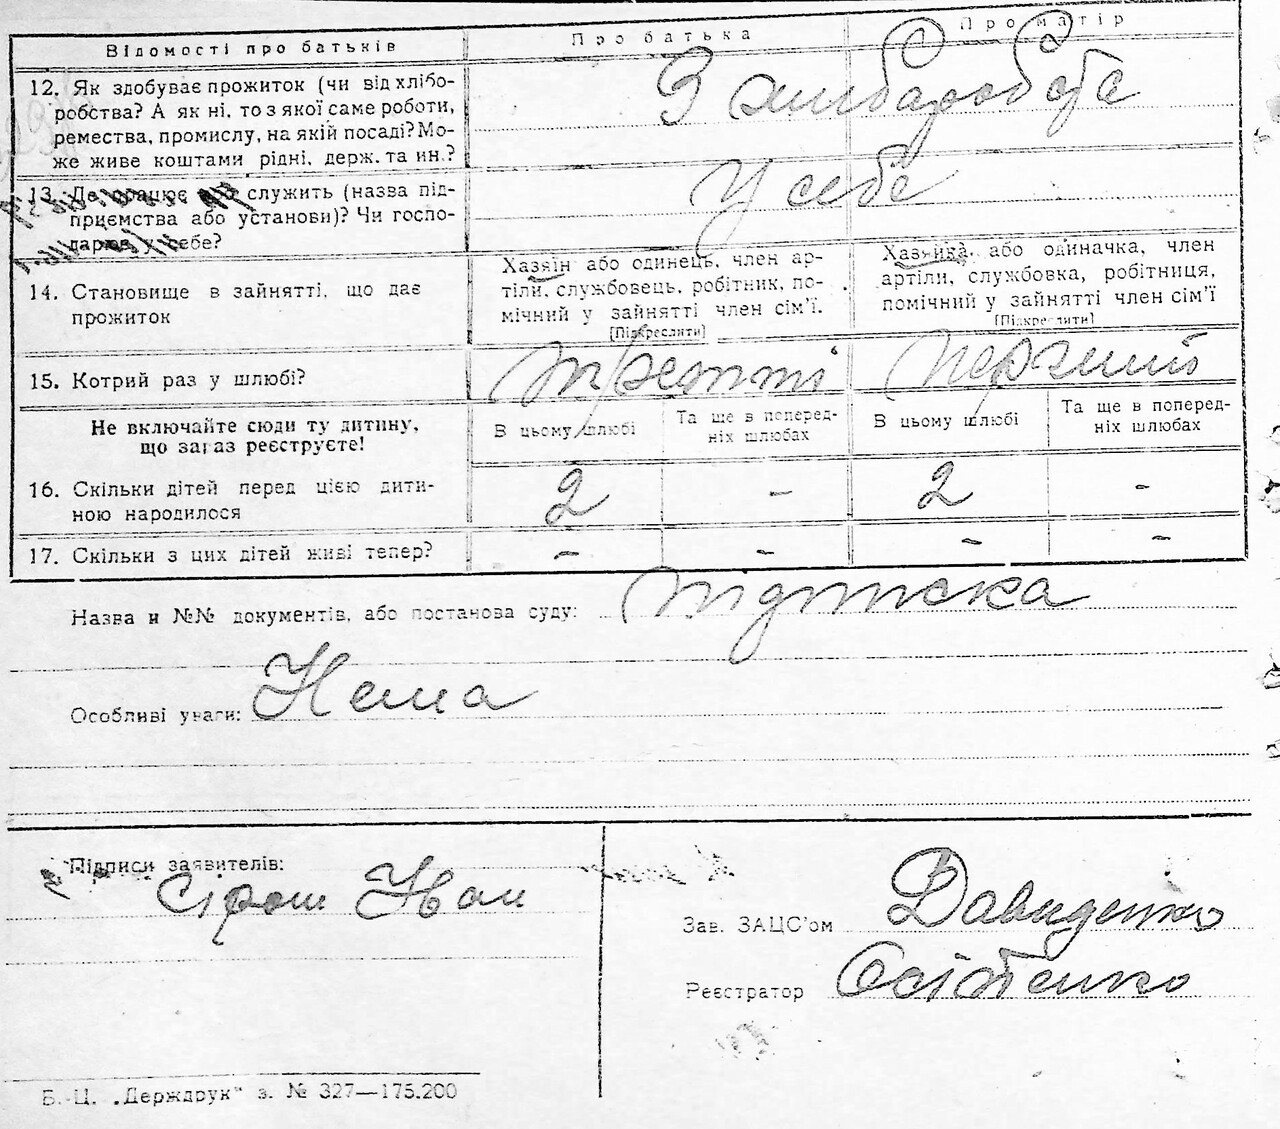 Відомості про батьків
Про батька
Про матір
12. Як здобуває прожиток (чи від хлібо-
робства? А як ні, то з якої саме роботи,
ремества, промислу, на якій посаді? Мо-
же живе коштами рідні, держ. та ин.?
З хліборобства
13. Де працює або служить (назва під-
приємства або установи)? Чи госпо-
дарює у себе?
У себе
14. Становище в зайнятті, що дає
прожиток
Хазяїн або одинець, член ар-
тіли, службовець, робітник, по-
мічний у зайнятті член сім'ї.
[Підкреслити]
Хазяйка, або одиначка, член
артіли, службовка, робітниця,
помічний у зайнятті член сім'ї
[Підкреслити]
15. Котрий раз у шлюбі?
третті
перший
Не включайте сюди ту дитину,
що зараз реєструєте!
В цьому шлюбі
Та ще в поперед-
ніх шлюбах
В цьому шлюбі
Та ще в поперед-
ніх шлюбах
16. Скільки дітей перед цією дити-
ною народилося
2 - 2 -
17. Скільки з цих дітей живі тепер?
- - - -
Назва и №№ документів, або постанова суду: підписка
Особливі уваги: Нема
Підписи заявителів:
Сірош Іван
Зав. ЗАЦС'ом Давиденко
Реєстратор
Б.-Ц. „Держдрук" з. № 327—175.200